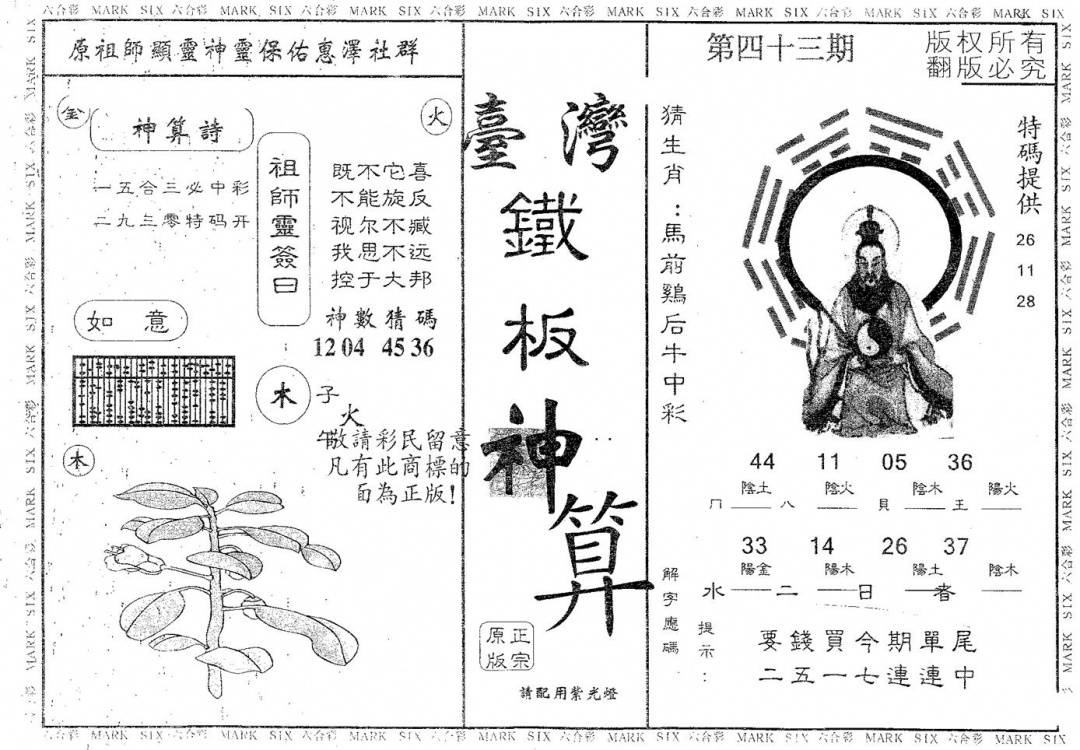 六合彩 MARK SIX 六合彩 MARK SIX 六合彩 MARK SIX 六合彩 MARK SIX 六合彩 MARK SIX 六合彩 MARK SIX 六合彩 MARK SIX 六合彩 MARK SIX
原祖師顯靈神靈保佑惠澤社群
金
神算詩
火
一五合三必中彩
二九三零特码开
祖師靈簽曰
既不它喜
不能旋反
视尔不臧
我思不远
控于大邦
如意
神數猜碼
12 04 45 36
木
子
火
午敬請彩民留意
凡有此商標的
百為正版!
木
臺灣
鐵
板
神
算
正宗
原版
請配用紫光燈
第四十三期
版权所有
翻版必究
猜生肖:馬前鷄后牛中彩
特碼提供
26
11
28
44 11 05 36
陰土 陰火 陰木 陽火
冂 八 貝 王
33 14 26 37
陽金 陽木 陽土 陰木
水 二 日 春
解字應碼
提示:
要錢買今期單尾
二五一七連連中
六合彩 MARK SIX 六合彩 MARK SIX 六合彩 MARK SIX 六合彩 MARK SIX 六合彩 MARK SIX 六合彩 MARK SIX 六合彩 MARK SIX 六合彩 MARK SIX